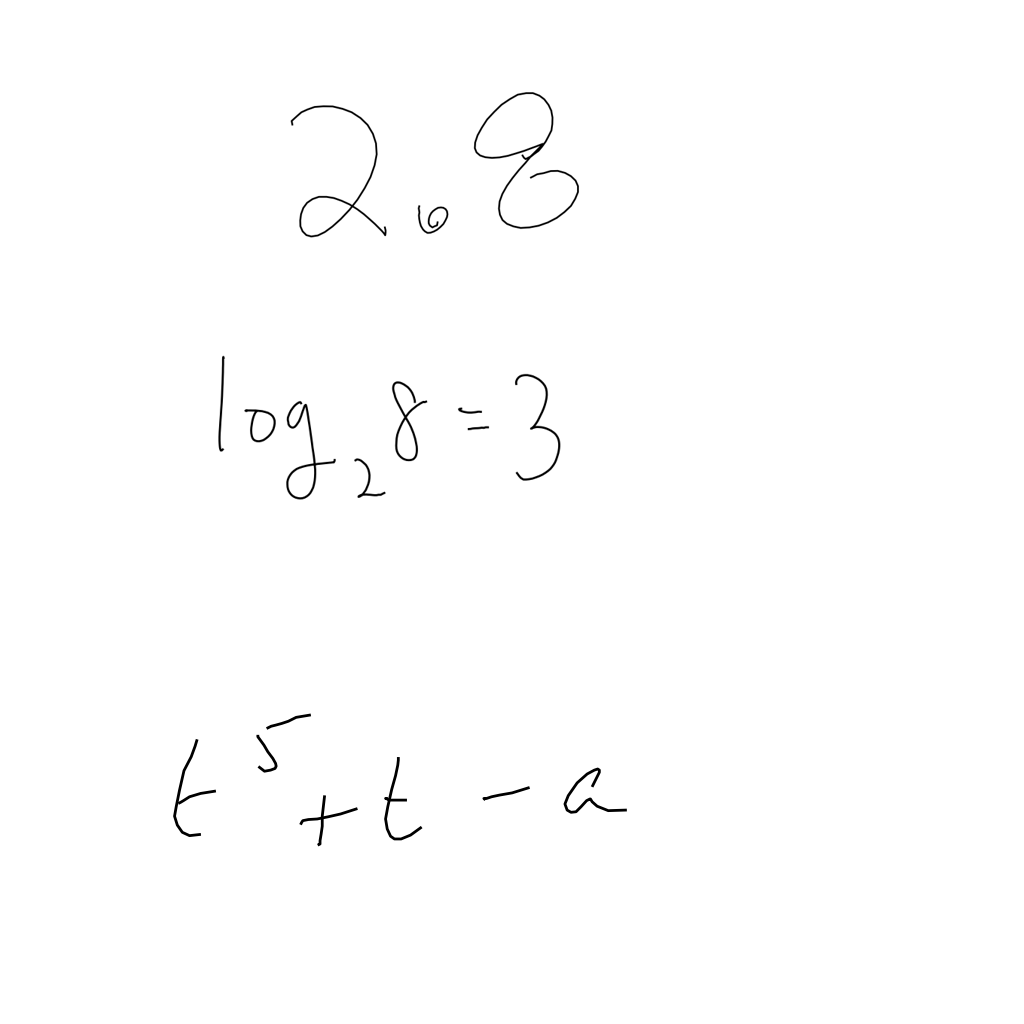 2.8
log₂8=3
t⁵+t-a